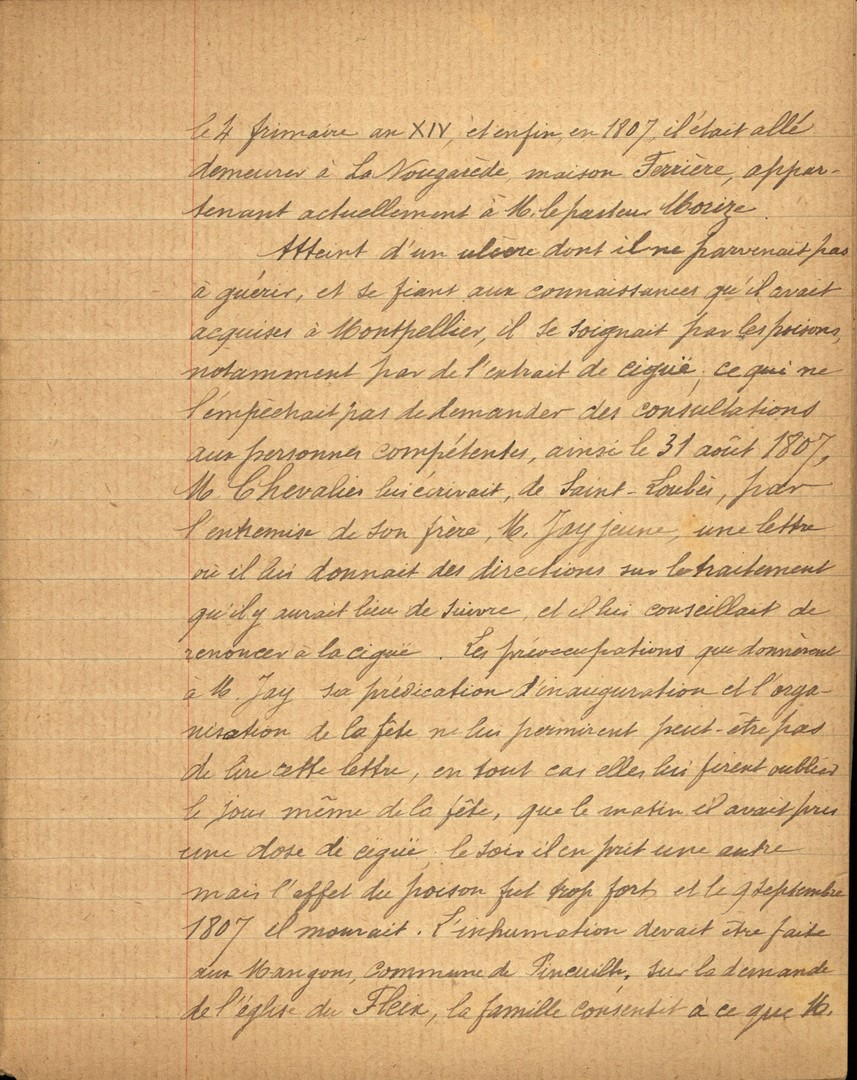 le 4 frimaire an XIV, et enfin, en 1807, il était allé
demeurer à La Nougarède, maison Ferrière, appar-
tenant actuellement à M. le pasteur Morize.
Atteint d'un ulcère dont il ne parvenait pas
à guérir, et se fiant aux connaissances qu'il avait
acquises à Montpellier, il se soignait par les poisons,
notamment par de l'extrait de ciguë, ce qui ne
l'empêchait pas de demander des consultations
aux personnes compétentes, ainsi le 31 août 1807,
M. Chevalier lui écrivait, de Saint-Loubès, par
l'entremise de son frère, M. Jay jeune, une lettre
où il lui donnait des directions sur le traitement
qu'il y aurait lieu de suivre, et il lui conseillait de
renoncer à la ciguë. Les préoccupations que donnèrent
à M. Jay sa prédication d'inauguration et l'orga-
nisation de la fête ne lui permirent peut-être pas
de lire cette lettre, en tout cas elles lui firent oublier
le jour même de la fête, que le matin il avait pris
une dose de ciguë, le soir il en prit une autre
mais l'effet du poison fut trop fort et le 9 septembre
1807 il mourait. L'inhumation devait être faite
aux Mangons, commune de Pineuilh, sur la demande
de l'église du Fleix, la famille consentit à ce que M.